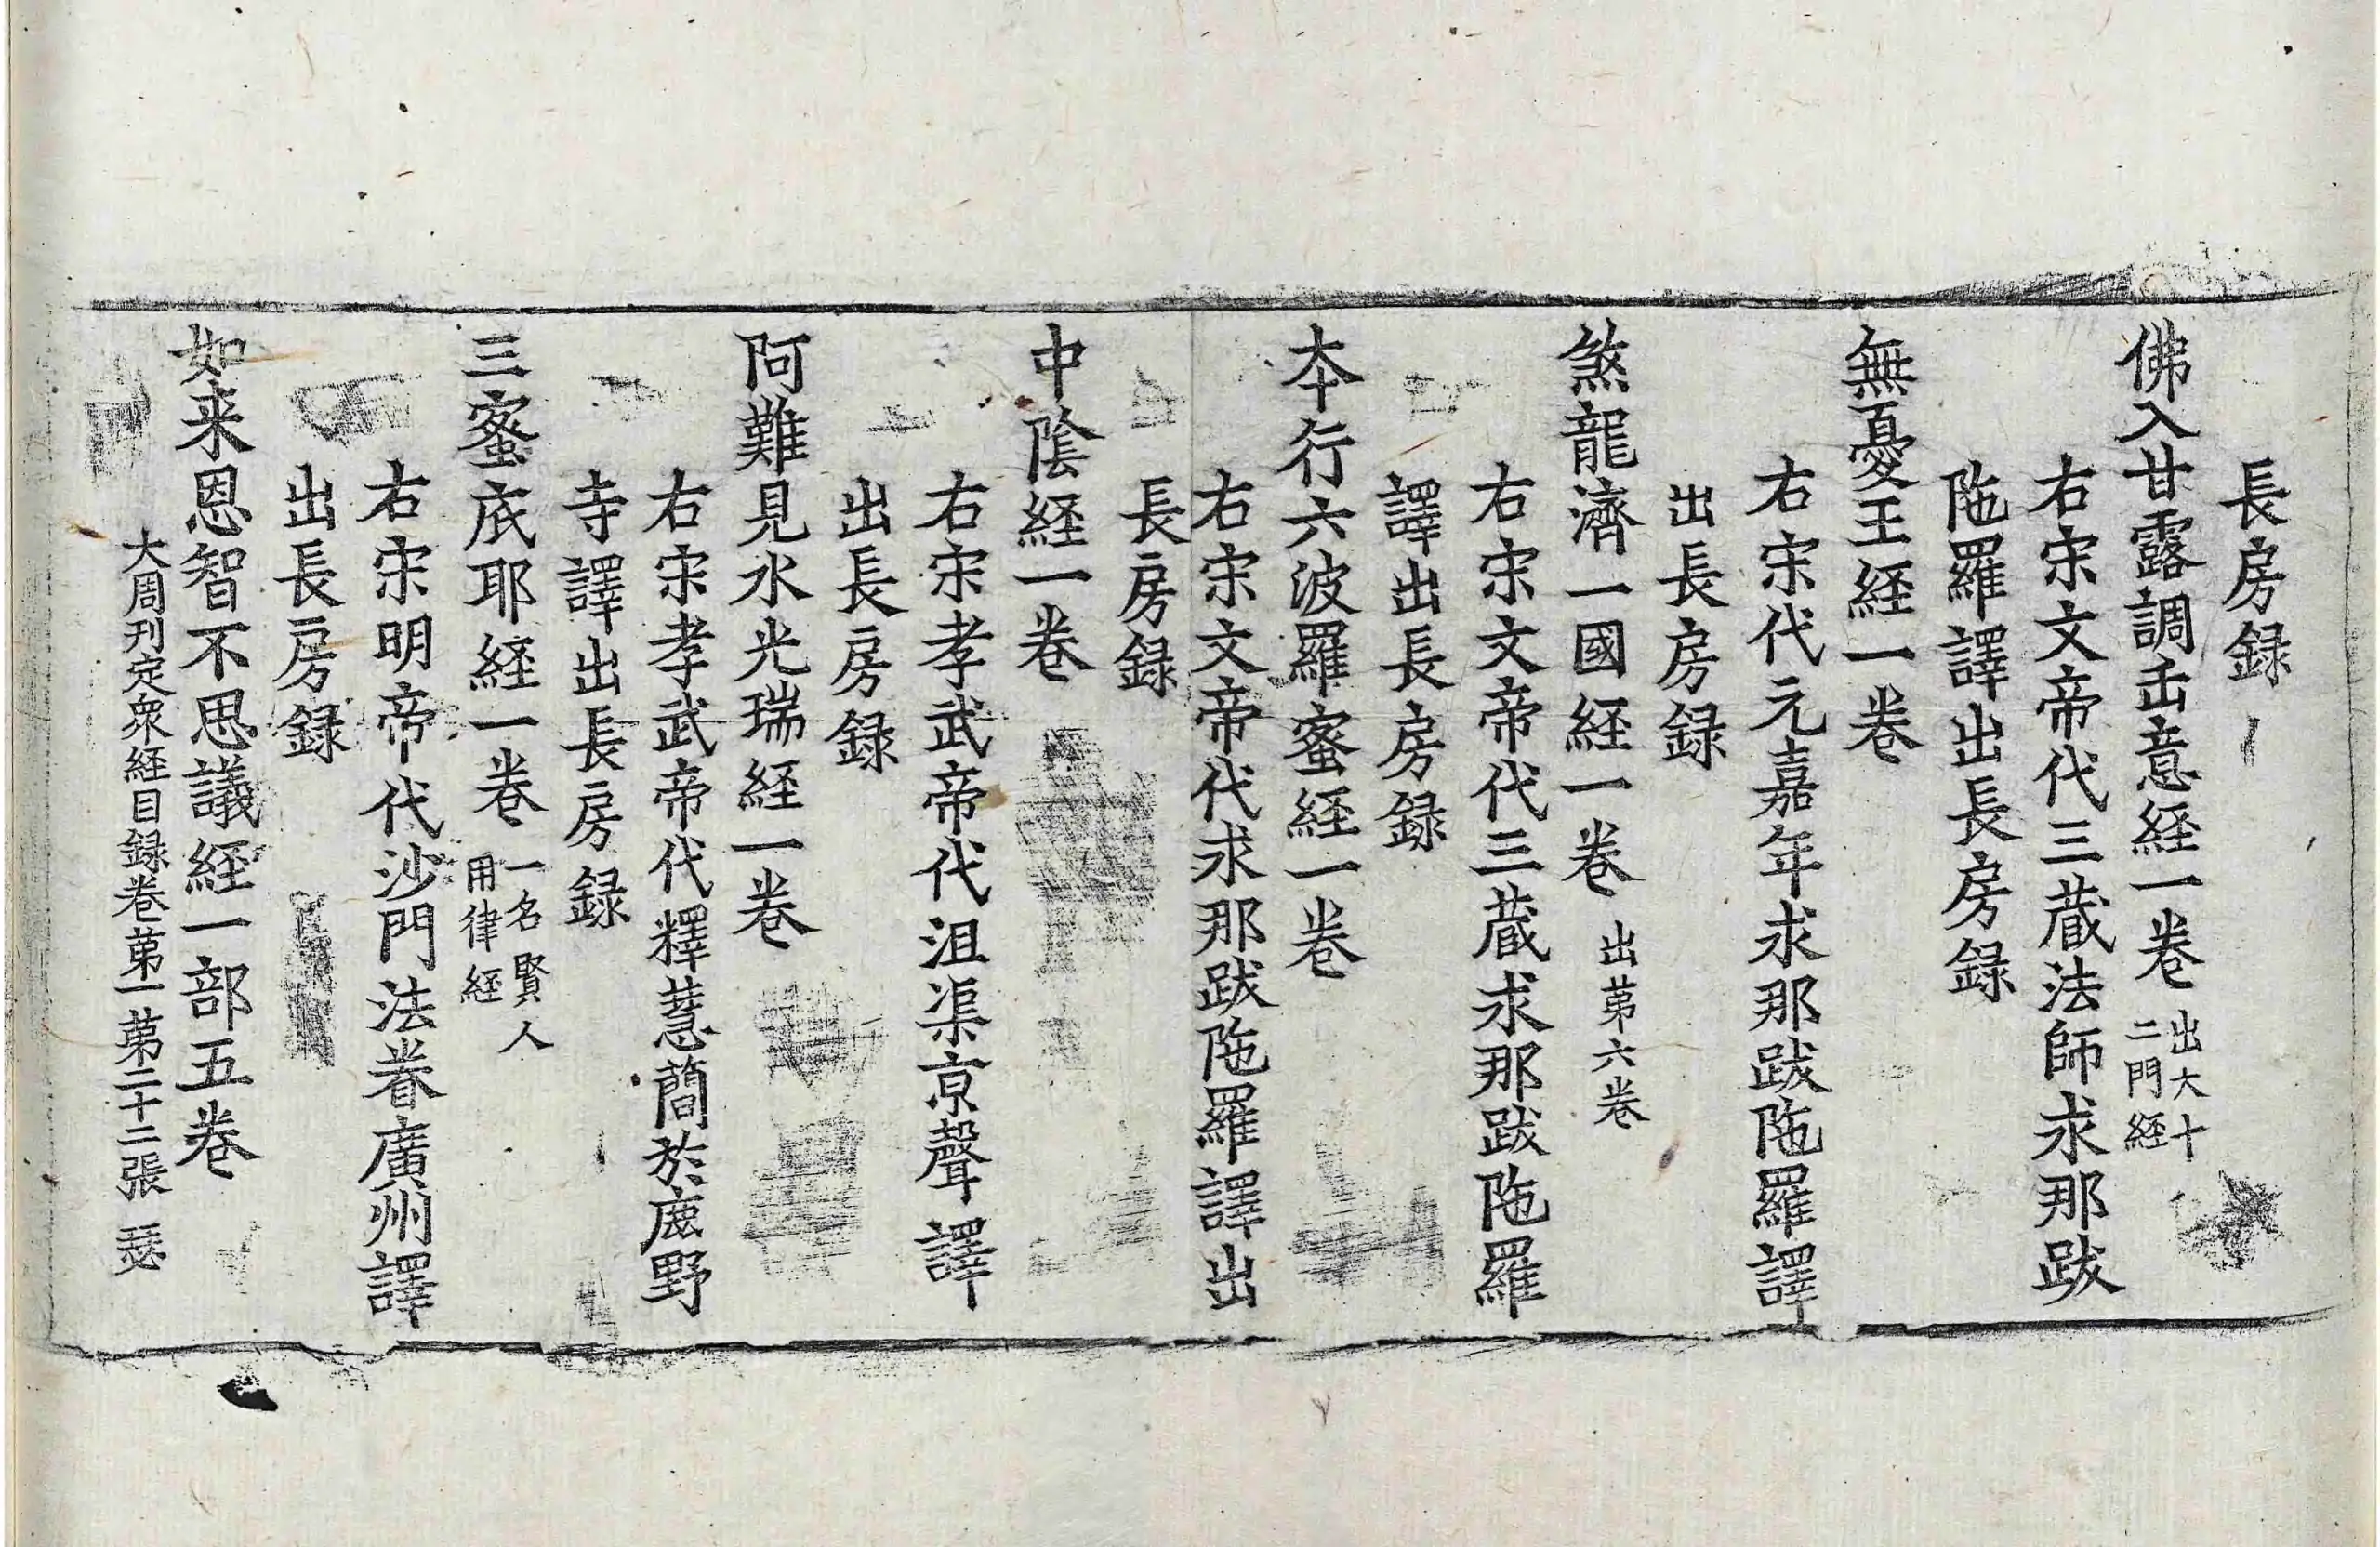 長房録
佛入甘露調缶意経一卷 出大十二門経
右宋文帝代三蔵法師求那跋
陁羅譯出長房録
無憂王経一卷
右宋代元嘉年求那跋陁羅譯
出長房録
煞龍濟一國経一卷 出苐六卷
右宋文帝代三蔵求那跋陁羅
譯出長房録
夲行六波羅蜜経一卷
右宋文帝代求那跋陁羅譯出
長房録
中陰経一卷
右宋孝武帝代沮渠京聲譯
出長房録
阿難見水光瑞経一卷
右宋孝武帝代釋慧蕳於鹿野
寺譯出長房録
三蜜底耶経一卷 一名賢人用律経
右宋明帝代沙門法眷廣州譯
出長房録
如来恩智不思議経一部五卷
大周刊定衆経目録卷苐一苐二十二張 瑟